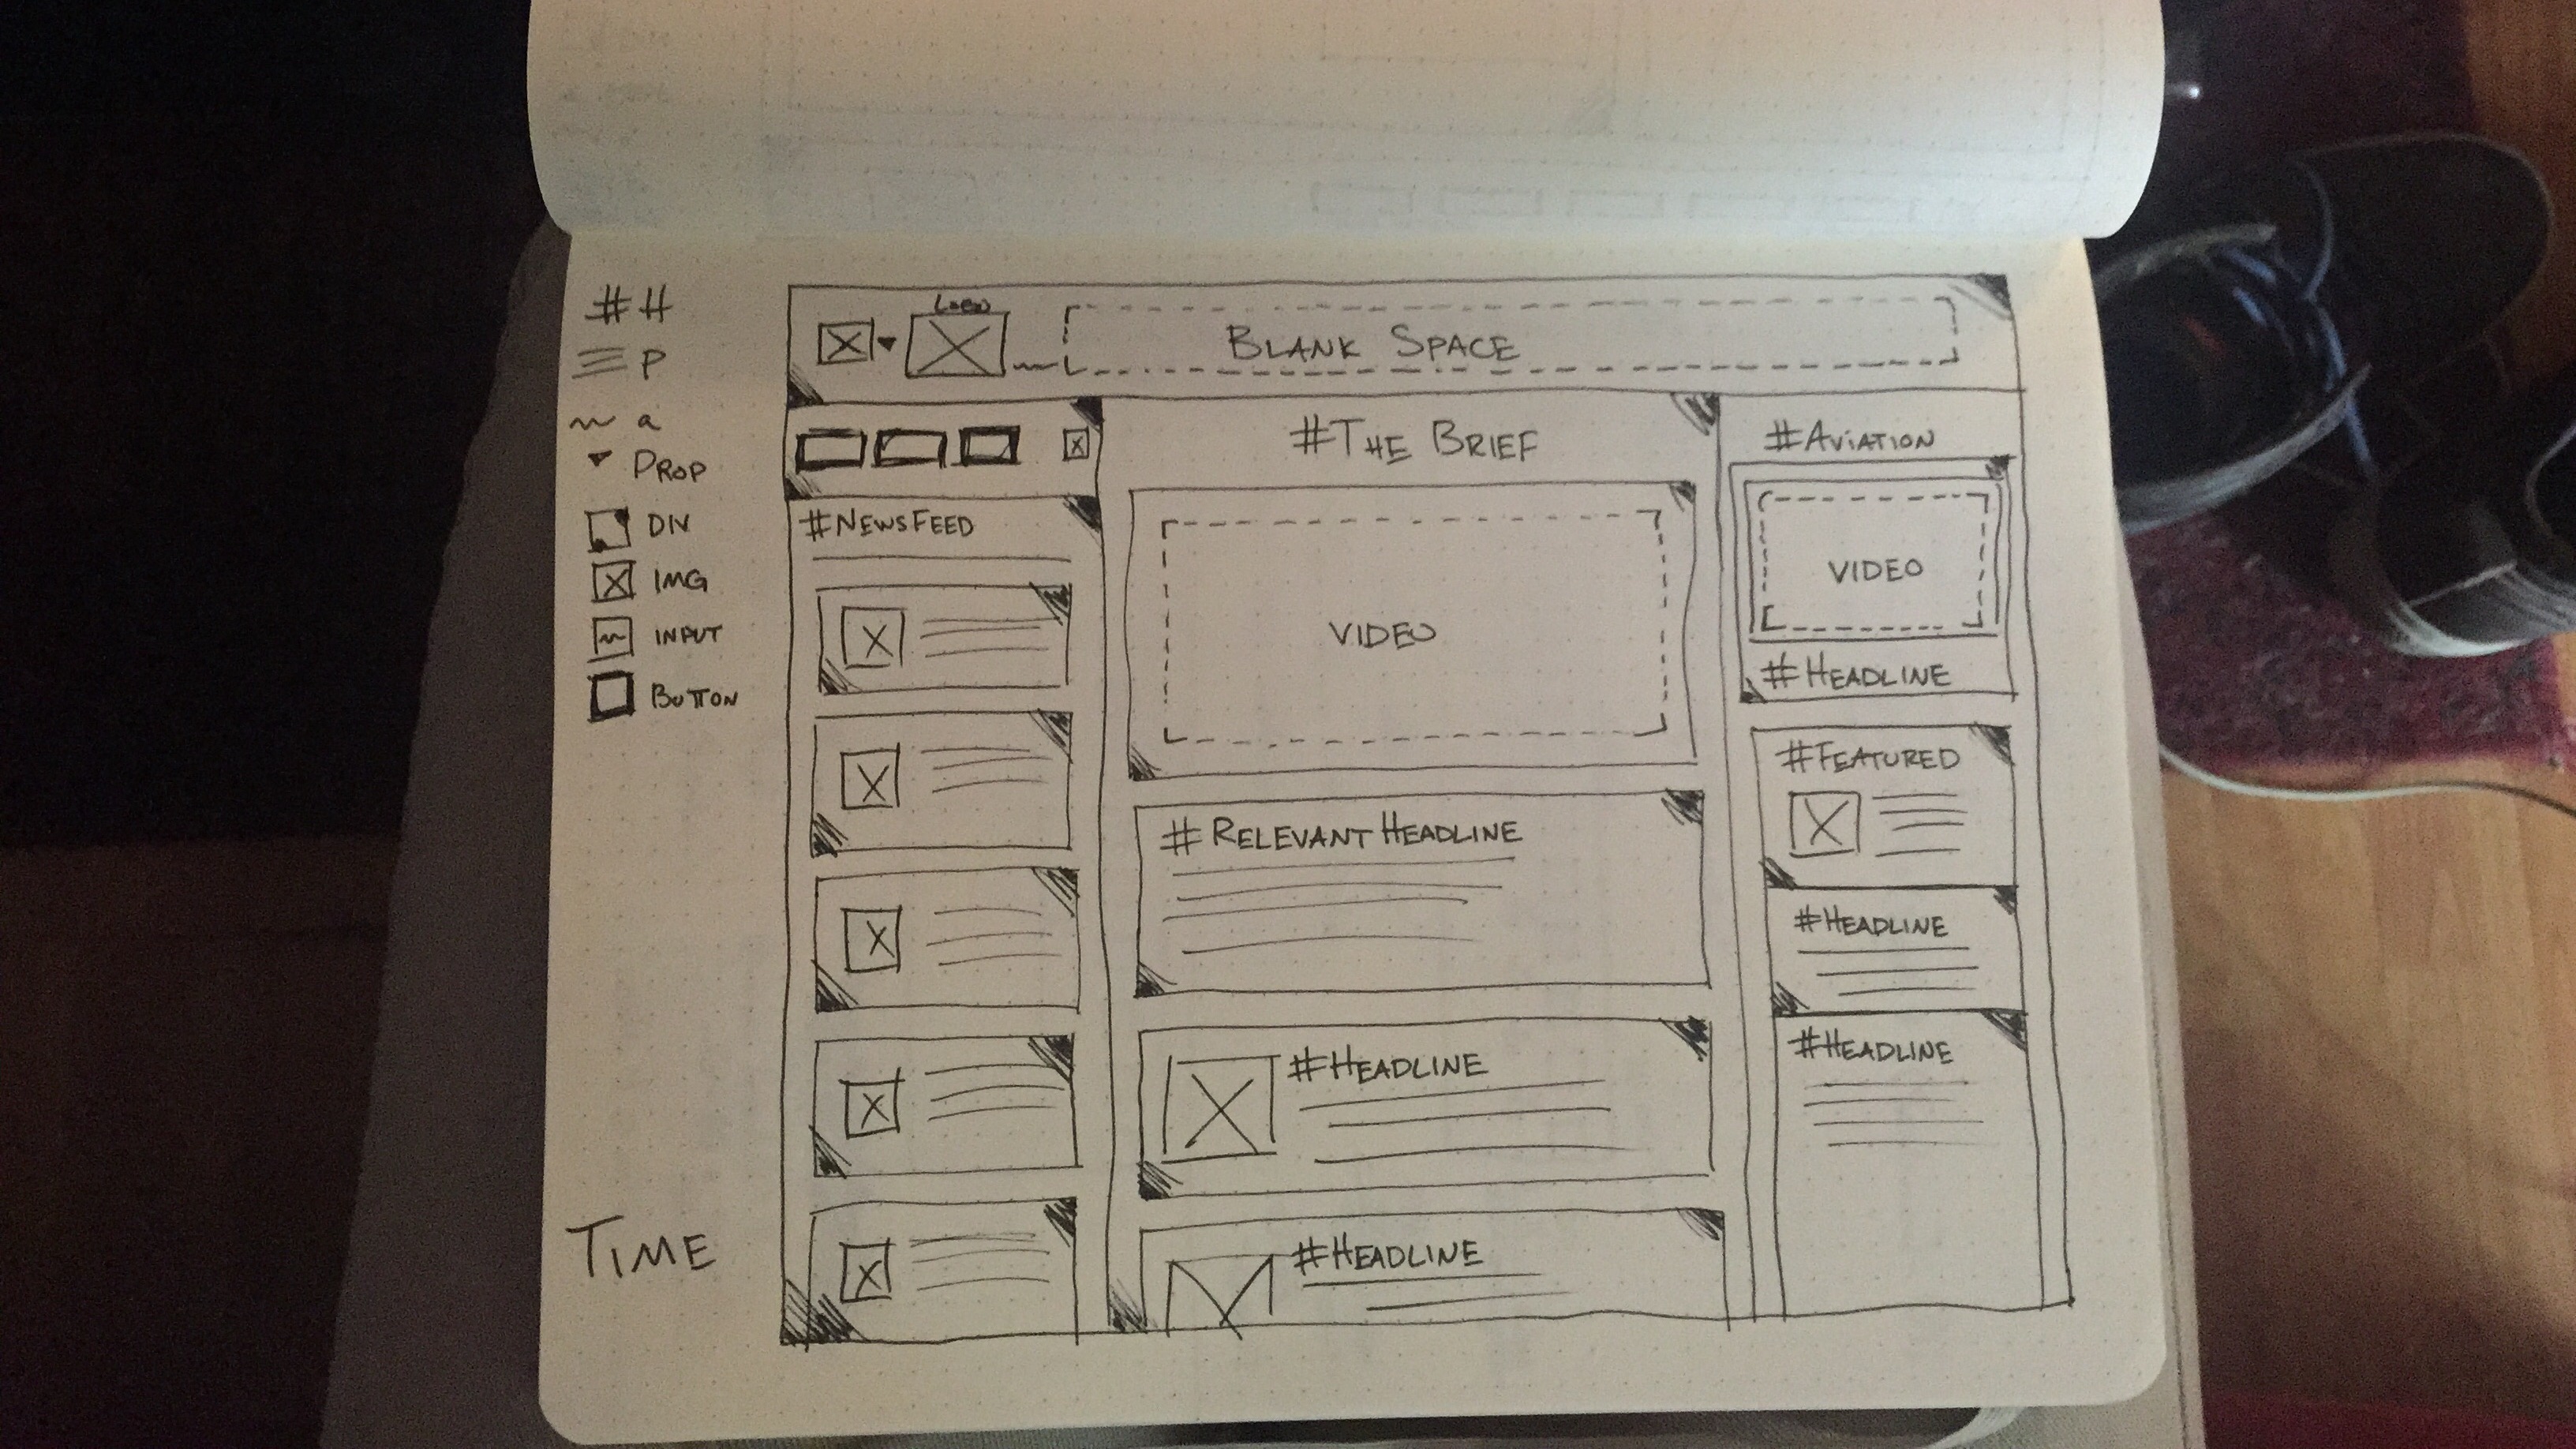 # H
P
a
DROP
DIV
IMG
INPUT
BUTTON
TIME
LOGO
BLANK SPACE
#NEWSFEED
#THE BRIEF
VIDEO
# RELEVANT HEADLINE
#HEADLINE
#HEADLINE
#AVIATION
VIDEO
#HEADLINE
#FEATURED
#HEADLINE
#HEADLINE